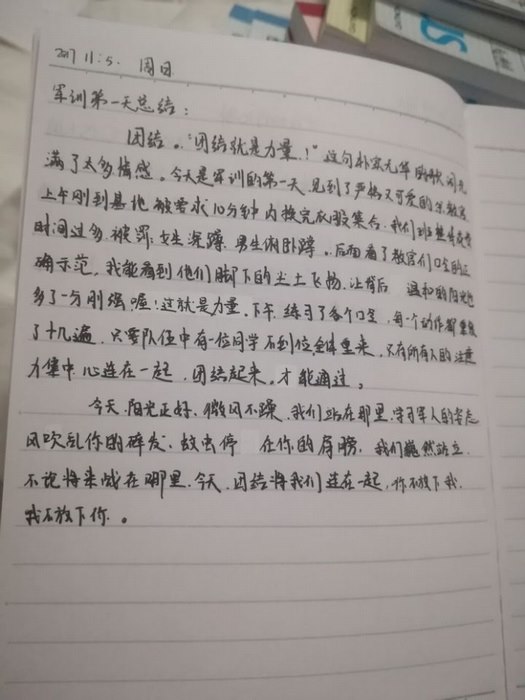 2017 11.5. 周日
军训第一天总结:
团结。"团结就是力量!"这句朴实无华的歌词充
满了太多情感。今天是军训的第一天,见到了严格又可爱的教官
上午刚到基地被要求10分钟内换完衣服集合,我们班
时间过多被罚,女生深蹲,男生俯卧撑。后面看了教官们口令的正
确示范,我能看到他们脚下的尘土飞扬,让背后温和的阳光也
多了一分刚强喔!这就是力量,下午,练习了各个口令,每一个动作都重复
了十几遍,只要队伍中有一位同学不到位全体重来,只有所有人的注意
力集中,心连在一起,团结起来,才能通过。
今天,阳光正好,微风不躁,我们站在那里,学习军人的姿态
风吹乱你的碎发,蚊虫停在你的肩膀,我们巍然站立,
不论将来战在哪里,今天,团结将我们连在一起,你不放下我,
我不放下你。